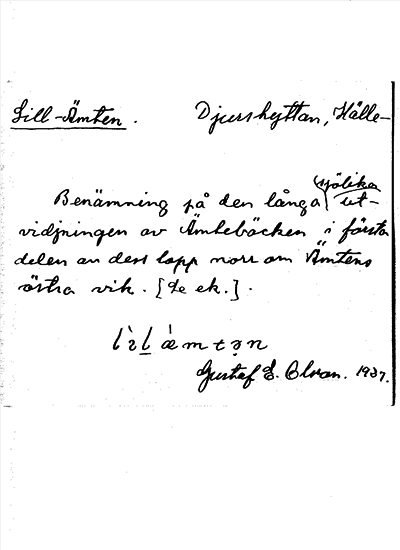 Lill-Ämten. Djurshyttan, Hälle-
Benämning på den långa sjölika ut-
vidjningen av Ämtebäcken i första
delen av dess lopp norr om Ämtens
östra vik. [Se ek.].
Gustaf E. 1937.